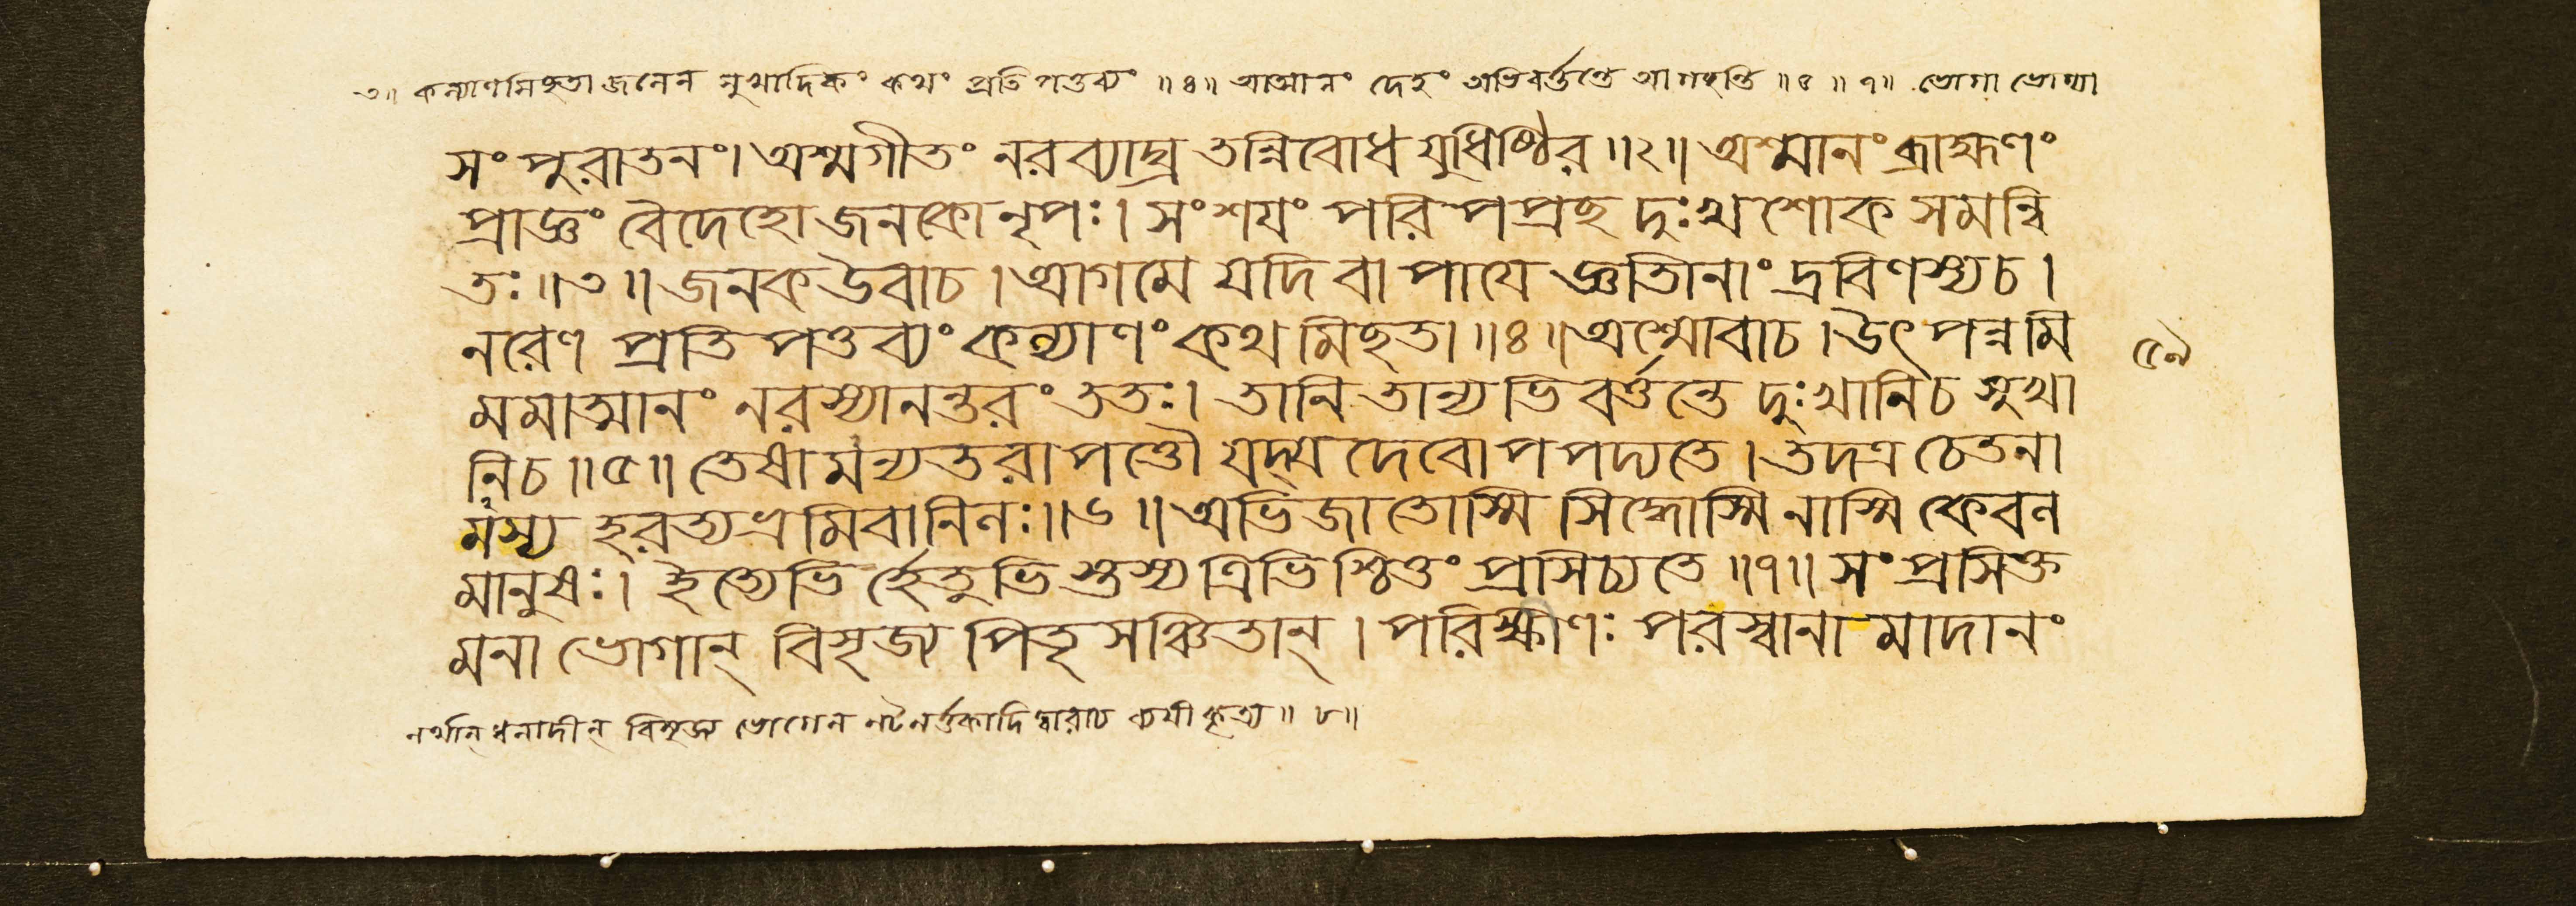 ৩॥ কল্যাণমিচ্ছতা জনেন সুখাদিকং কথং প্রতিপত্তব্যং ॥৪॥ আত্মানং দেহং অভিবর্ত্তন্তে আগচ্ছন্তি ॥৫॥৭॥ ভোগা ভোগ্যা
সং পুরাতনং। অশ্মগীতং নরব্যাঘ্র তন্নিবোধ যুধিষ্ঠির॥২॥ অশ্মানং ব্রাহ্মণং
প্রাজ্ঞং বৈদেহো জনকো নৃপঃ। সংশয়ং পরিপপ্রচ্ছ দুঃখশোকসমন্বি
তঃ॥৩॥ জনক উবাচ। আগমে যদি বাপায়ে জ্ঞাতিনাং দ্রবিণস্য চ।
নরেণ প্রতিপত্তব্যং কল্যাণং কথমিচ্ছতা॥৪॥ অশ্মোবাচ। উৎপন্নমি
মমাত্মানং নরস্যানন্তরং ততঃ। তানি তান্যভিবর্ত্তন্তে দুঃখানি চ সুখা
নি চ॥৫॥ তেষামন্যতরাপত্তৌ যদ্যদেবোপপদ্যতে। তদত্র চেতনা
মস্য হরত্যভ্রমিবানিলঃ॥৬॥ অভিজাতোস্মি সিদ্ধোস্মি নাস্মি কেবল
মানুষঃ। ইত্যেভির্হেতুভিস্তস্য ত্রিভিশ্চিত্তং প্রসিচ্যতে॥৭॥ সংপ্রসিক্ত
মনা ভোগান্ বিসৃজ্য পিতৃসঞ্চিতান্। পরিক্ষীণঃ পরস্বানামাদানং
৫৯
নর্থান্ ধনাদীন্ বিসৃজ্য ভোগেন নটনর্ত্তকাদিদ্বারাচ ব্যয়ীকৃত্য॥ ৮॥